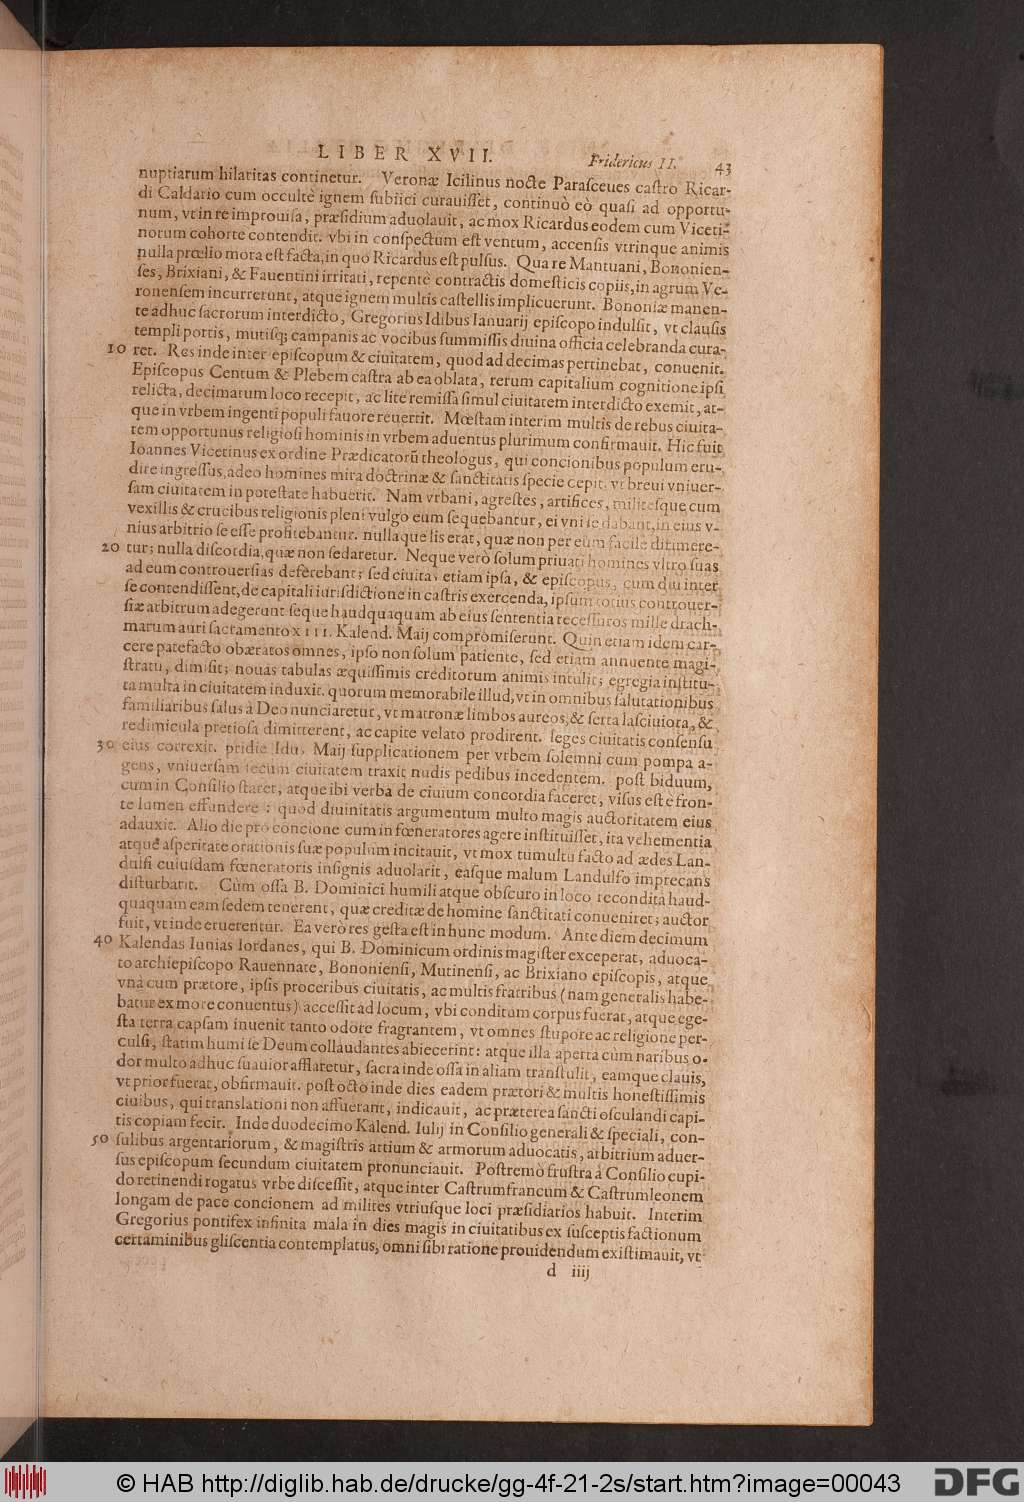 LIBER XVII. Fridericus II. 43
nuptiarum hilaritas continetur. Veronæ Icilinus nocte Parasceues castro Ricar-
di Caldario cum occultè ignem subiici curauisset, continuò eò quasi ad opportu-
num, vt in re improuisa, præsidium aduolauit, ac mox Ricardus eodem cum Viceti-
norum cohorte contendit. vbi in conspectum est ventum, accensis vtrinque animis
nulla prœlio mora est facta, in quo Ricardus est pulsus. Qua re Mantuani, Bononien-
ses, Brixiani, & Fauentini irritati, repentè contractis domesticis copiis, in agrum Ve-
ronensem incurrerunt, atque ignem multis castellis implicuerunt. Bononiæ manen-
te adhuc sacrorum interdicto, Gregorius Idibus Ianuarij episcopo indulsit, vt clausis
templi portis, mutisq; campanis ac vocibus summissis diuina officia celebranda cura-
10 ret. Res inde inter episcopum & ciuitatem, quod ad decimas pertinebat, conuenit.
Episcopus Centum & Plebem castra ab ea oblata, rerum capitalium cognitione ipsi
relicta, decimarum loco recepit, ac lite remissa simul ciuitatem interdicto exemit, at-
que in vrbem ingenti populi fauore reuertit. Mœstam interim multis de rebus ciuita-
tem opportunus religiosi hominis in vrbem aduentus plurimum confirmauit. Hic fuit
Ioannes Vicetinus ex ordine Prædicatorũ theologus, qui concionibus populum eru-
dire ingressus, adeo homines mira doctrinæ & sanctitatis specie cepit, vt breui vniuer-
sam ciuitatem in potestate habuerit. Nam vrbani, agrestes, artifices, militesque cum
vexillis & crucibus religionis pleni vulgo eum sequebantur, ei vni se dabant, in eius v-
nius arbitrio se esse profitebantur. nullaque lis erat, quæ non per eum facile dirimere-
20 tur; nulla discordia, quæ non sedaretur. Neque verò solum priuati homines vltro suas
ad eum controuersias deferebant; sed ciuitas etiam ipsa, & episcopus, cum diu inter
se contendissent, de capitali iurisdictione in castris exercenda, ipsum totius controuer-
siæ arbitrum adegerunt seque haudquaquam ab eius sententia recessuros mille drach-
marum auri sacramento XIII. Kalend. Maij compromiserunt. Quin etiam idem car-
cere patefacto obæratos omnes, ipso non solum patiente, sed etiam annuente magi-
stratu, dimisit; nouas tabulas æquissimis creditorum animis intulit; egregia institu-
ta multa in ciuitatem induxit. quorum memorabile illud, vt in omnibus salutationibus
familiaribus salus à Deo nunciaretur, vt matronæ limbos aureos, & serta lasciuiora, &
redimicula pretiosa dimitterent, ac capite velato prodirent. leges ciuitatis consensu
30 eius correxit. pridie Idus Maij supplicationem per vrbem solemni cum pompa a-
gens, vniuersam secum ciuitatem traxit nudis pedibus incedentem. post biduum,
cum in Consilio staret, atque ibi verba de ciuium concordia faceret, visus est è fron-
te lumen effundere: quod diuinitatis argumentum multo magis auctoritatem eius
adauxit. Alio die pro concione cum in fœneratores agere instituisset, ita vehementia
atque asperitate orationis suæ populum incitauit, vt mox tumultu facto ad ædes Lan-
dulfi cuiusdam fœneratoris insignis aduolarit, easque malum Landulfo imprecans
disturbarit. Cùm ossa B. Dominici humili atque obscuro in loco recondita haud-
quaquam eam sedem tenerent, quæ creditæ de homine sanctitati conueniret; auctor
fuit, vt inde eruerentur. Ea verò res gesta est in hunc modum. Ante diem decimum
40 Kalendas Iunias Iordanes, qui B. Dominicum ordinis magister exceperat, aduoca-
to archiepiscopo Rauennate, Bononiensi, Mutinensi, ac Brixiano episcopis, atque
vnà cum prætore, ipsis proceribus ciuitatis, ac multis fratribus (nam generalis habe-
batur ex more conuentus) accessit ad locum, vbi conditum corpus fuerat, atque ege-
sta terra capsam inuenit tanto odore fragrantem, vt omnes stupore ac religione per-
culsi, statim humi se Deum collaudantes abiecerint: atque illa aperta cùm naribus o-
dor multo adhuc suauior afflaretur, sacra inde ossa in aliam transtulit, eamque clauis,
vt prior fuerat, obfirmauit. post octo inde dies eadem prætori & multis honestissimis
ciuibus, qui translationi non affuerant, indicauit, ac præterea sancti osculandi capi-
tis copiam fecit. Inde duodecimo Kalend. Iulij in Consilio generali & speciali, con-
50 sulibus argentariorum, & magistris artium & armorum aduocatis, arbitrium aduer-
sus episcopum secundum ciuitatem pronunciauit. Postremò frustra à Consilio cupi-
do retinendi rogatus vrbe discessit, atque inter Castrumfrancum & Castrumleonem
longam de pace concionem ad milites vtriusque loci præsidiarios habuit. Interim
Gregorius pontifex infinita mala in dies magis in ciuitatibus ex susceptis factionum
certaminibus gliscentia contemplatus, omni sibi ratione prouidendum existimauit, vt
d iiij
© HAB http://diglib.hab.de/drucke/gg-4f-21-2s/start.htm?image=00043
DFG